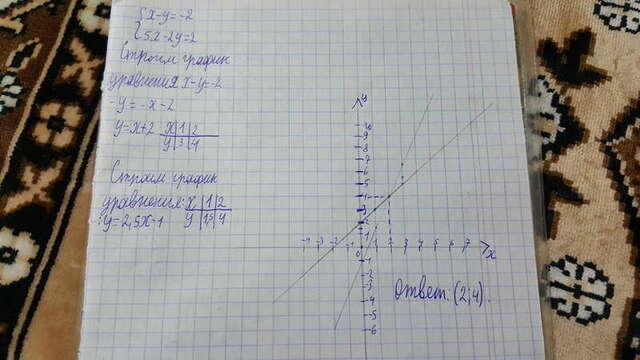 { x - y = -2
{ 5x - 2y = 2
Строим график
уравнения x - y = -2
-y = -x - 2
y = x + 2
x | 1 | 2
y | 3 | 4
Строим график
уравнения:
x | 1 | 2
y | 1,5 | 4
y = 2,5x - 1
y
10
9
8
7
6
5
4
3
2
1
-4 -3 -2 -1 0 1 2 3 4 5 6 7 x
-1
-2
-3
-4
-5
-6
Ответ (2;4).